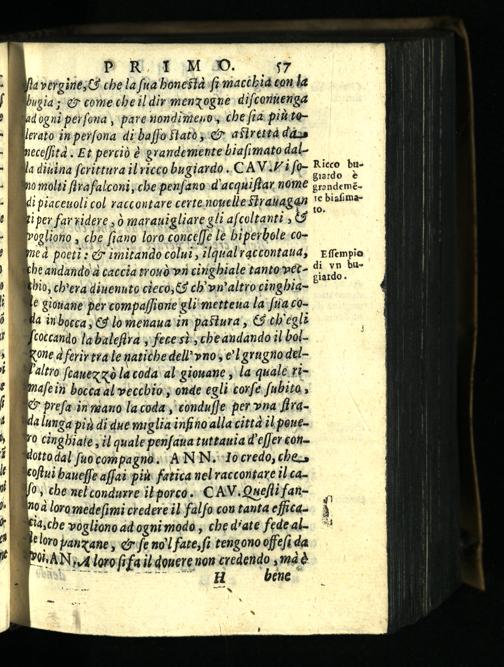 PRIMO. 57
sta vergine, & che la sua honestà si macchia con la
bugia; & come che il dir menzogne disconuenga
ad ogni persona, pare nondimeno, che sia più to-
lerato in persona di basso stato, & astretta da
necessità. Et perciò è grandemente biasimato dal-
la diuina scrittura il ricco bugiardo. CAV. Vi so-
no molti strafalconi, che pensano d'acquistar nome
di piaceuoli col raccontare certe nouelle strauagan
ti per far ridere, ò marauigliare gli ascoltanti, &
vogliono, che siano loro concesse le hiperbole co-
me a poeti: & imitando colui, il qual raccontaua,
che andando à caccia trouò vn cinghiale tanto vec-
chio, ch'era diuenuto cieco, & ch'vn'altro cinghia-
le giouane per compassione gli metteua la sua co-
da in bocca, & lo menaua in pastura, & ch'egli
scoccando la balestra, fece sì, che andando il bol-
zone à ferir tra le natiche dell'vno, e'l grugno del-
l'altro scauezzò la coda al giouane, la quale ri-
mase in bocca al vecchio, onde egli corse subito,
& presa in mano la coda, condusse per vna stra-
da lunga più di due miglia infino alla città il poue-
ro cinghiale, il quale pensaua tuttauia d'esser con-
dotto dal suo compagno. ANN. Io credo, che
costui hauesse assai più fatica nel raccontare il ca-
so, che nel condurre il porco. CAV. Questi fan-
no à loro medesimi credere il falso con tanta effica-
cia, che vogliono ad ogni modo, che d'ate fede al-
le loro panzane, & se no'l fate, si tengono offesi da
voi. AN. A loro si fa il douere non credendo, ma è
H bene
Ricco bu-
giardo è
grandemẽ-
te biasima-
to.
Essempio
di vn bu-
giardo.